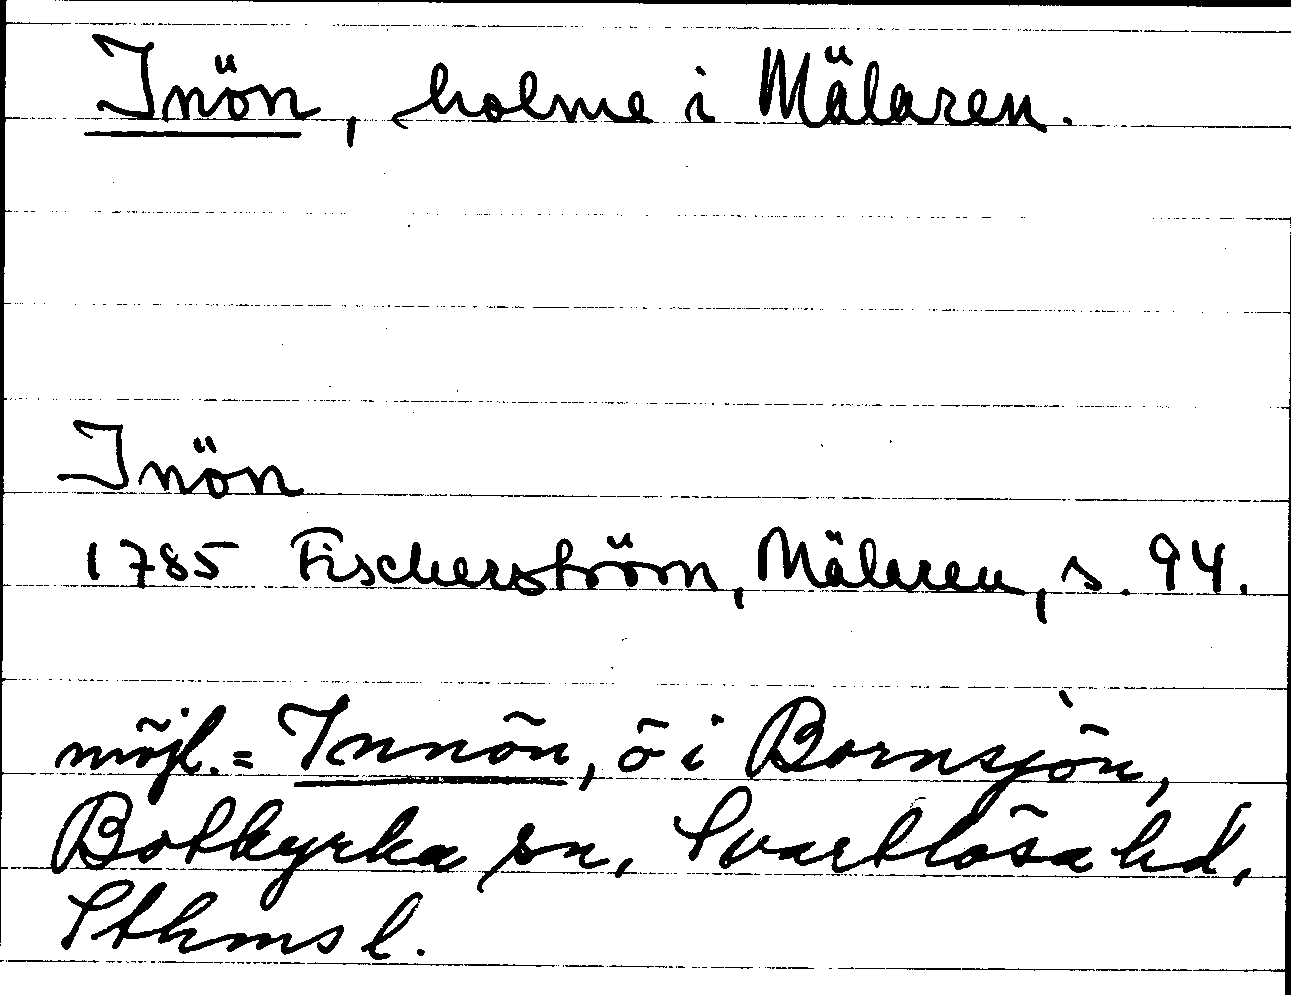 Inön, holme i Mälaren.
Inön
1785 Fischerström, Mälaren, s. 94.
möjl. = Innön, ö i Bornsjön,
Botkyrka sn, Svartlösa hd,
Sthms l.